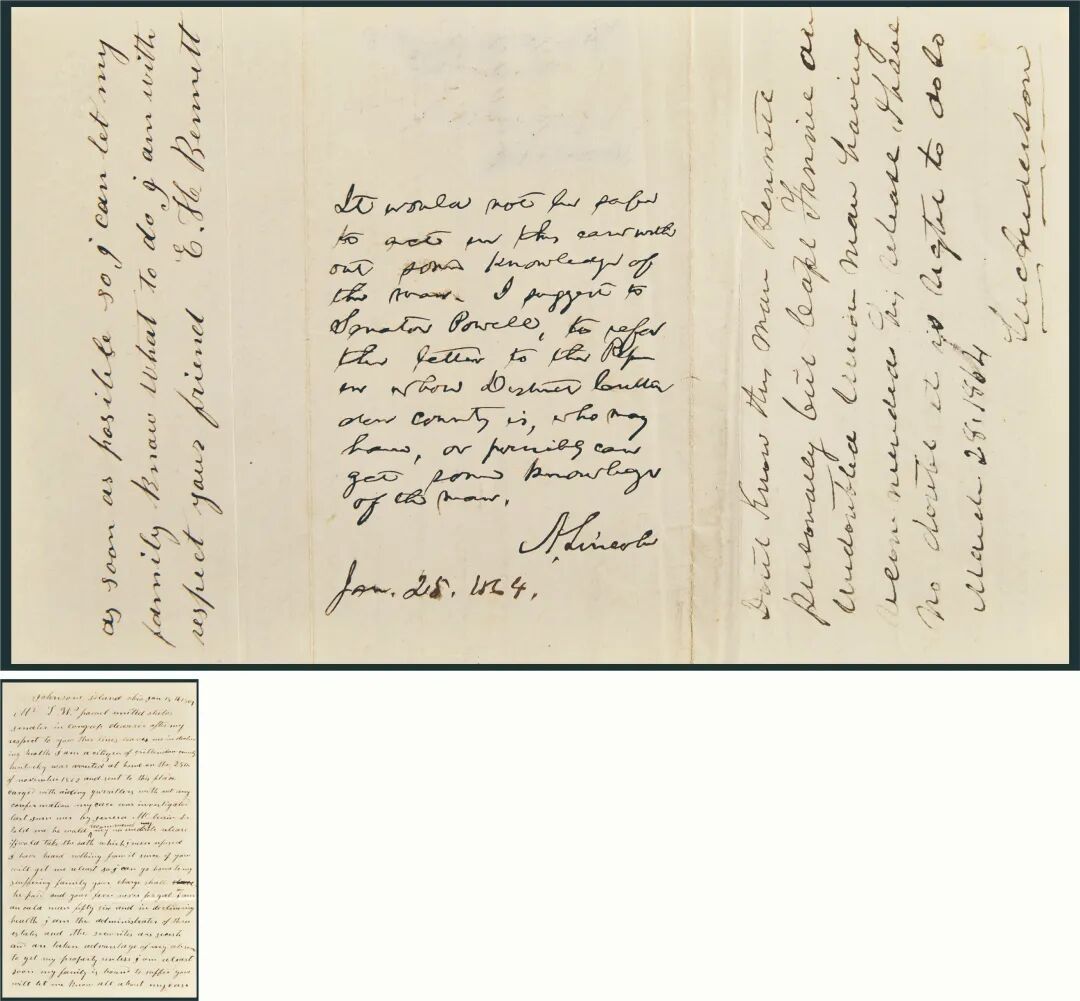 as soon as posible so j can let my
family know what to do j am with
respect your friend E. H. Bennett
It would not be safe
to act in this case with
out some knowledge of
the man. I suggest to
Senator Powell, to refer
this letter to the Rep.
in whose District Critten
den county is, who may
have, or possibly can
get some knowledge
of the man.
A. Lincoln
Jan. 25. 1864.
Dont Know this man Bennett
personally but Capt Fannie an
undoubted Union man having
recommended his release I have
no doubt it is right to do so
March 28. 1864
Luc Anderson
Johnsons island ohio Jan
Mr L. W. united states
senator in congress after my
respect to you this lines leaves me in declin
ing health j am a citizen of crittendon county
kentucky was arrested at home on the 25th
of november 1862 and sent to this place
carged with aiding with out any
conformation my case was investigated
last by Mc
told me he would recommend my immediate release
if would take the oath which j never refused
j have heard nothing from it since if you
will get me releast so j can go home to my
suffering family your charge shall
be paid and your favor never forgot j am
an oald man fifty six and in declining
health j am the administrator of three
estates and the securites
and are taken advantage of my absence
to get my property unless j am releast
soon my family is bound to suffer you
will let me know all about my case